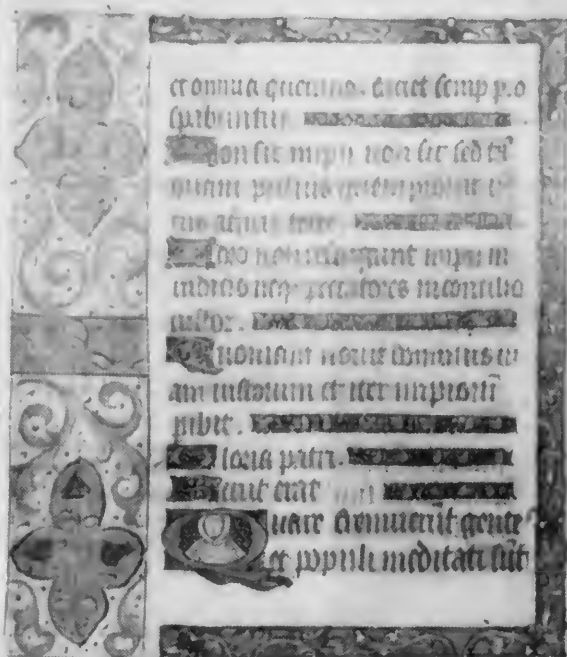 et omnia quecunq. faciet semp p.o
spabuntur.
Non sic impii non sic sed tā
quam pulvis quem proicit v
tus a facie terre.
Ideo non resurgunt impii in
iudicio neq; peccatores in concilio
iustor.
Quoniam novit dominus vi
am iustorum et iter impiorū
pibit.
Gloria patri.
Sicut erat
Quare fremuerūt gente
et populi meditati sūt